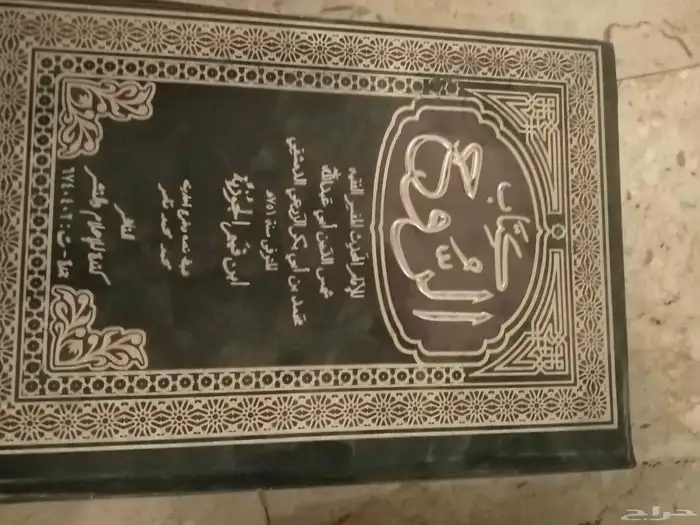 كتاب
الروح
للإمام المحدث المفسر الفقيه
شمس الدين أبي عبد الله
محمد بن أبي بكر الزرعي الدمشقي
المتوفى سنة ٧٥١ هـ
ابن قيم الجوزية
محمد محمد تامر
الناشر
حراج